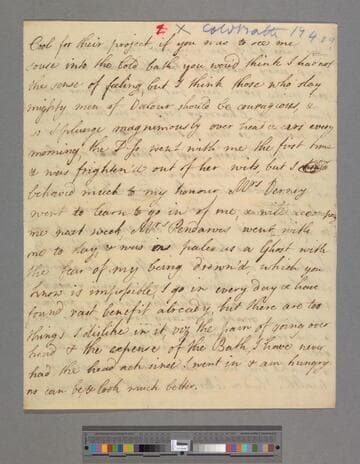 x Cold Bath 17
Cool for their project, if you was to see me
souse into the Cold bath you would think I had not
the sense of feeling, but I think those who slay
mighty men of Valour should be couragious, &
so I plunge magnimously over head & ears every
morning, the D: went with me the first time
& was frighten'd out of her wits, but I
behaved much to my honour, Mrs Verney
went to learn to go in of me, & will
me next week Mrs Pendarves went with
me to day, & was as pale as a Ghost with
the fear of my being drown'd, which you
know is impossible, I go in every day & have
found vast benefit already, but there are two
things I dislike in it viz the pain of going over
head & the expense of the Bath, I have never
had the head ach since I went in & am hungry
as can be & look much better.